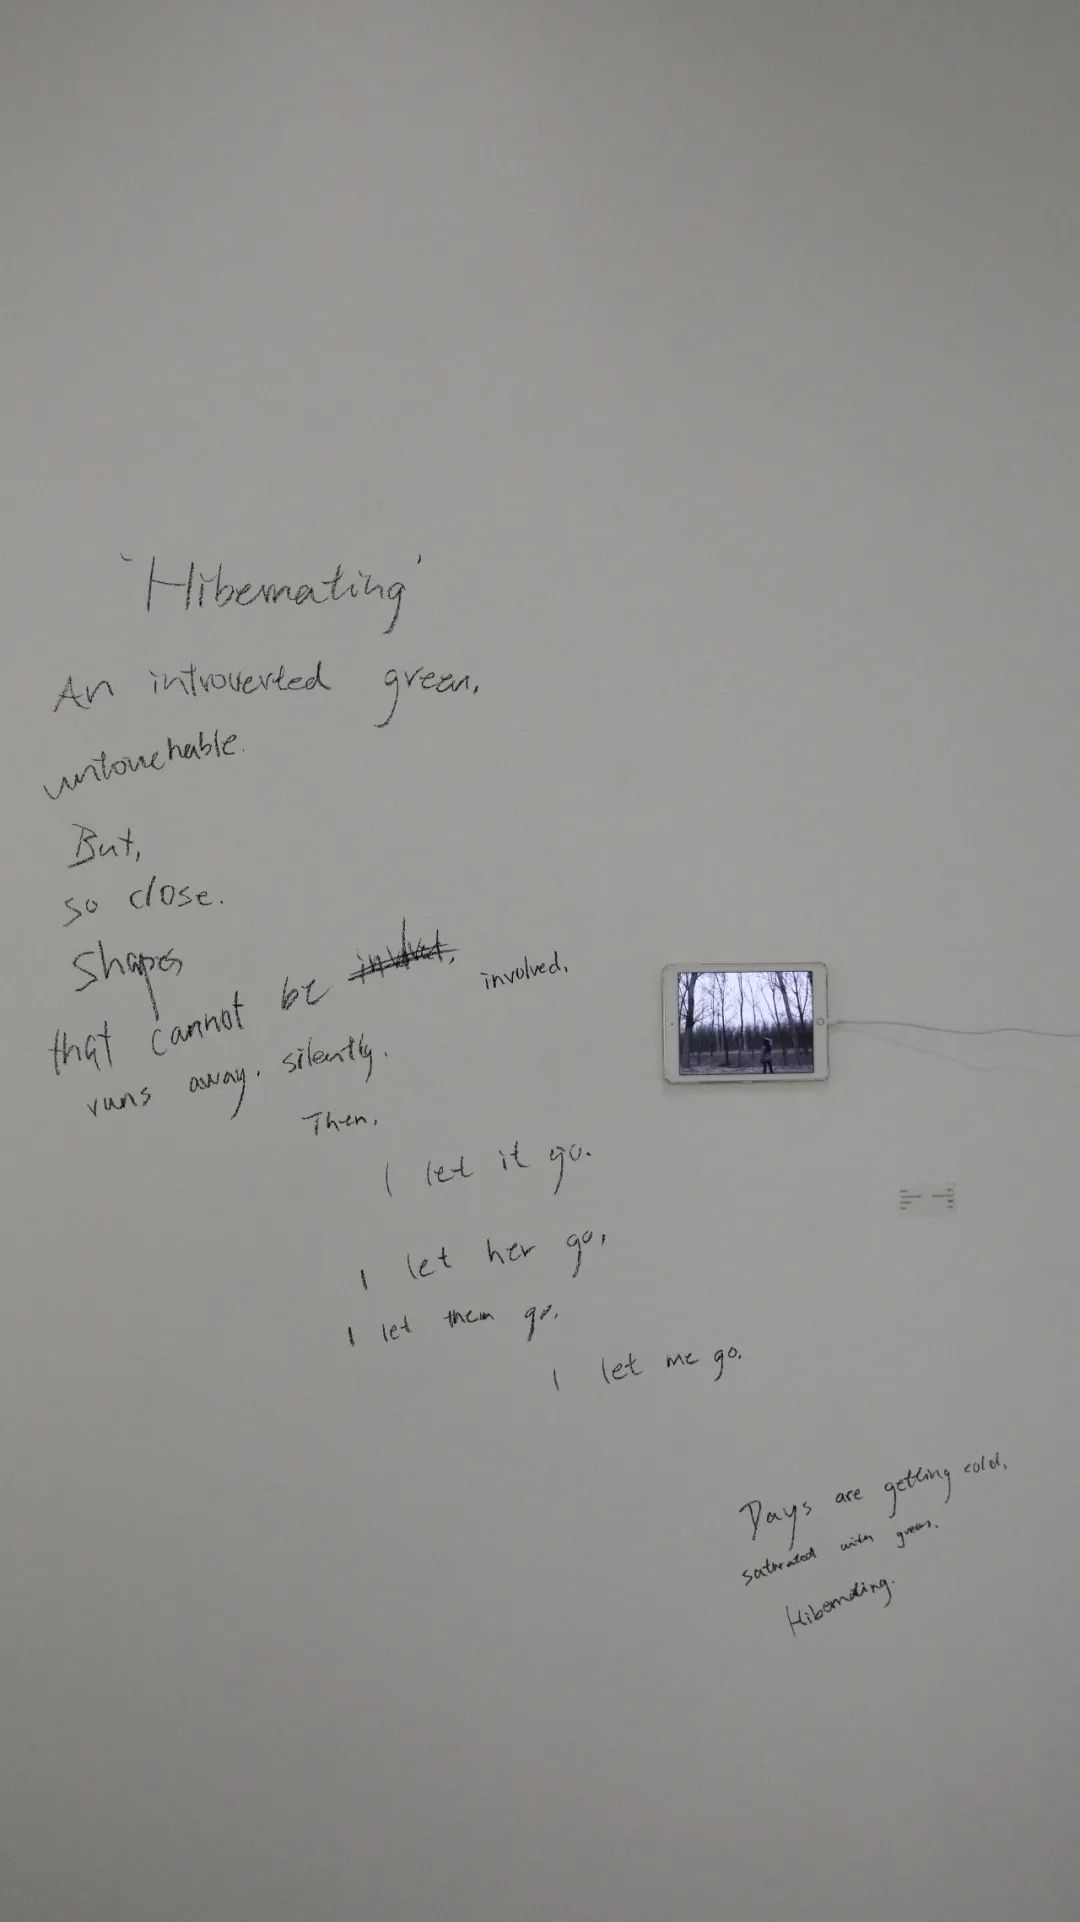 'Hibernating'
An introverted green,
untouchable.
But,
so close.
Shapes
that cannot be involved,
runs away. silently.
Then,
I let it go.
I let her go,
I let them go,
I let me go.
Days are getting cold,
saturated with green.
Hibernating.